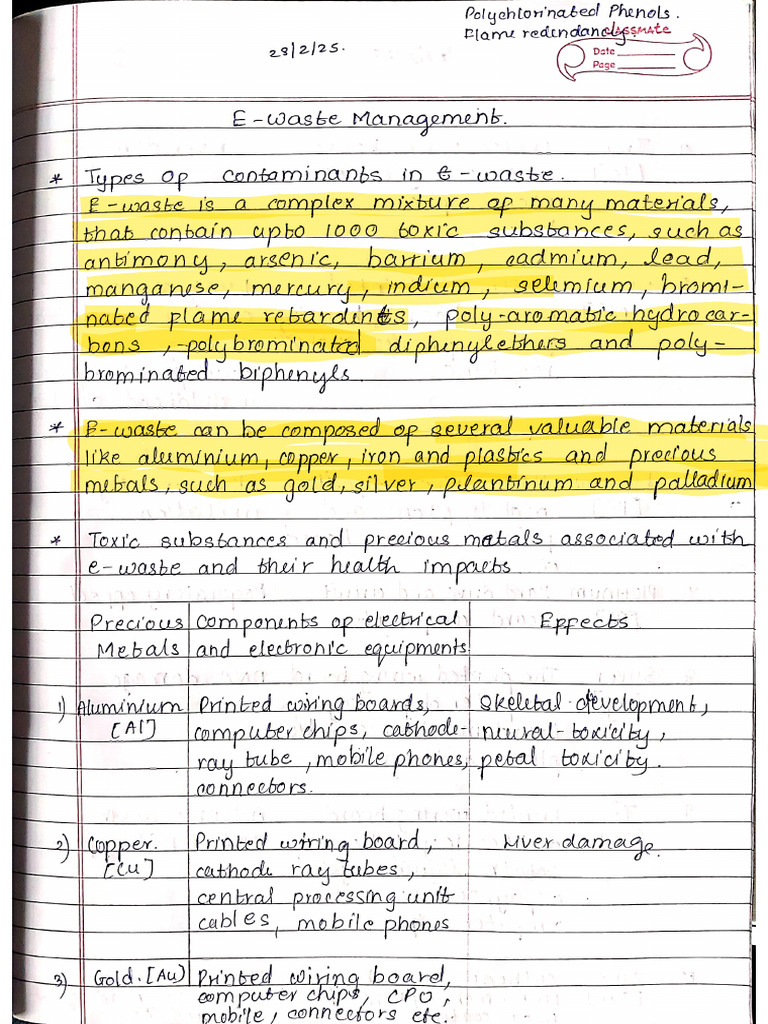 Polychlorinated Phenols.
Flame redendancy.
classmate
Date
Page
28/2/25.
E-Waste Management.
* Types of contaminants in E-waste.
E-waste is a complex mixture of many materials,
that contain upto 1000 toxic substances, such as
antimony, arsenic, barrium, cadmium, lead,
manganese, mercury, indium, selemium, bromi-
nated flame retardints, poly-aromatic hydrocar-
bons, -polybrominated diphenylethers and poly-
brominated biphenyls.
* E-waste can be composed of several valuable materials
like aluminium, copper, iron and plastics and precious
metals, such as gold, silver, plantinum and palladium
* Toxic substances and precious metals associated with
e-waste and their health impacts
Precious Components of electrical Effects
Metals and electronic equipments
1) Aluminium Printed wiring boards, Skeletal development,
[Al] computer chips, cathode- neural-toxicity,
ray tube, mobile phones, fetal toxicity.
connectors.
2) Copper. Printed wiring board, Liver damage.
[Cu] cathode ray tubes,
central processing unit
cables, mobile phones
3) Gold. [Au] Printed wiring board,
computer chips, CPU,
mobile, connectors etc.